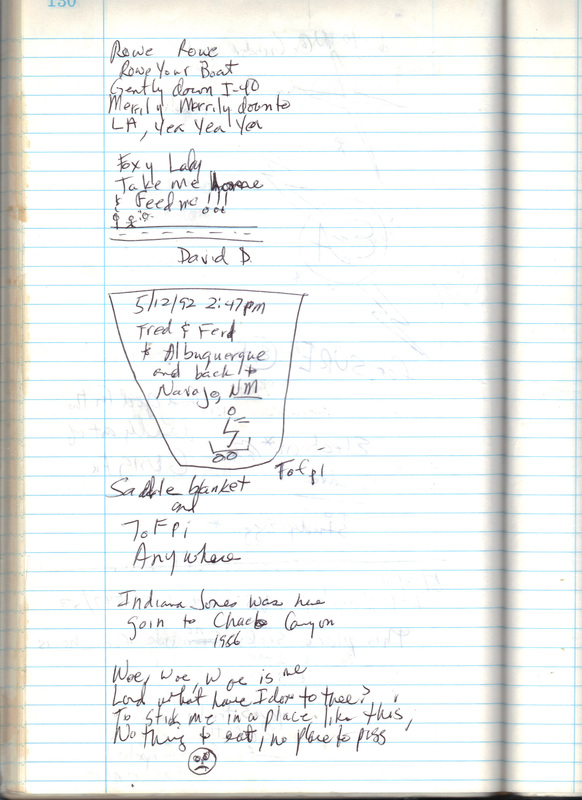 130
Rowe Rowe
Rowe Your Boat
Gently down I-40
Merrily Merrily down to
LA, Yea Yea Yea
Foxy Lady
Take me home
& Feed me !!!
David D.
5/12/92 2:47pm
Fred & Ferd
to Albuquerque
and back to
Navajo, NM
Tofpi
Saddle blanket
and
ToFPi
Anywhere
Indiana Jones was here
goin to Chaco Canyon
1956
Woe, Woe, Woe is me
Lord what have I done to thee?
To stick me in a place like this,
Nothing to eat, no place to piss